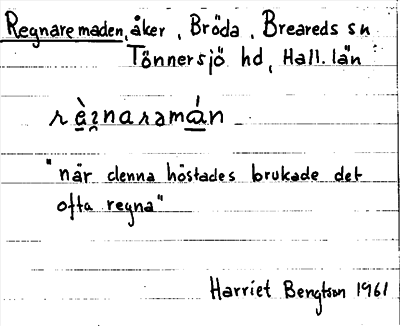 Regnaremaden, åker, Bröda, Breareds sn
Tönnersjö hd, Hall. län
"när denna höstades brukade det
ofta regna"
Harriet Bengtson 1961